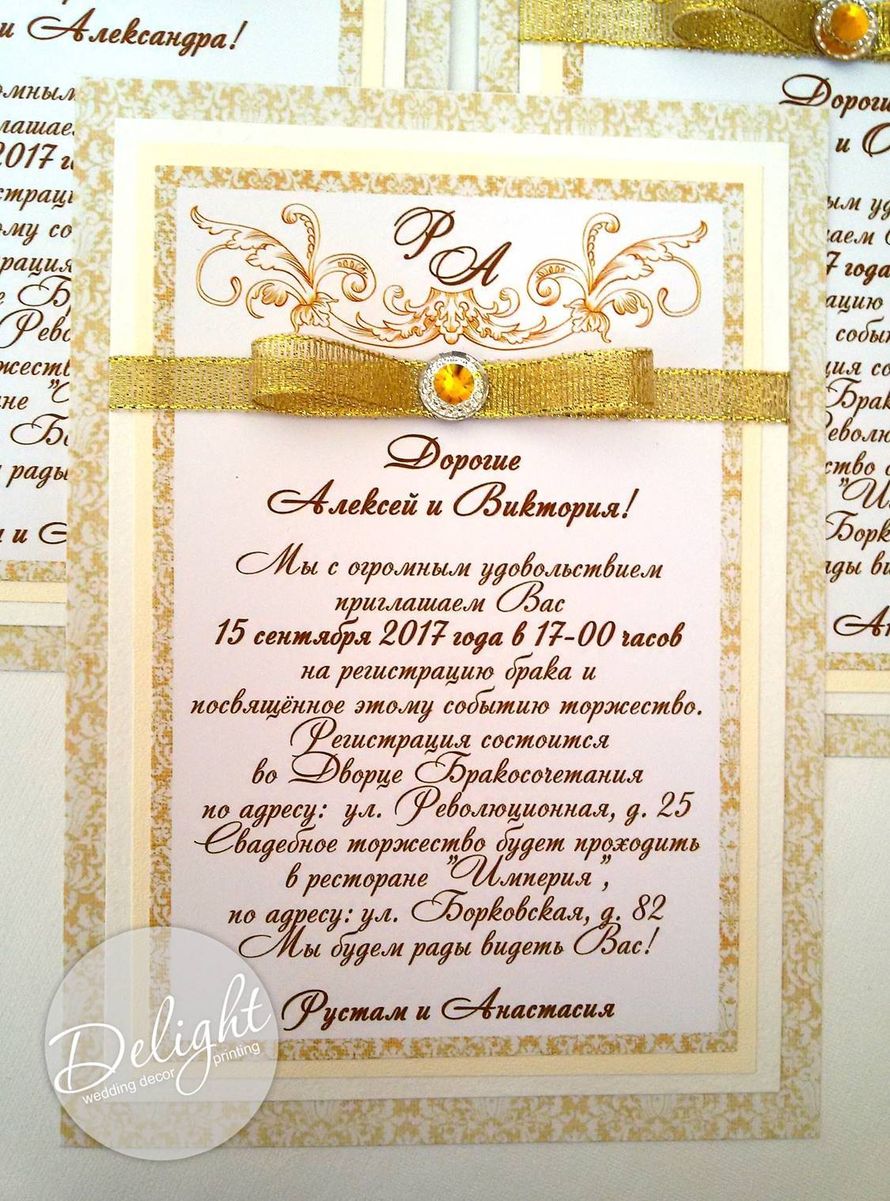 и Александра!
2017 г
рады
Дорогие
и
года
Р А
Дорогие
Алексей и Виктория!
Мы с огромным удовольствием
приглашаем Вас
15 сентября 2017 года в 17-00 часов
на регистрацию брака и
посвящённое этому событию торжество.
Регистрация состоится
во Дворце Бракосочетания
по адресу: ул. Революционная, д. 25
Свадебное торжество будет проходить
в ресторане "Империя",
по адресу: ул. Борковская, д. 82
Мы будем рады видеть Вас!
Рустам и Анастасия
Delight
wedding decor printing